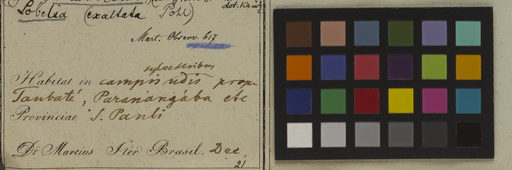 Lobelia (exaltata Pohl)
Mart. Observ. 617
sylvestribus
Habitat in campis udis prope
Taubaté, Paranangába etc
Provinciae S. Pauli
Dr Martius Iter Brasil. Dec.
21